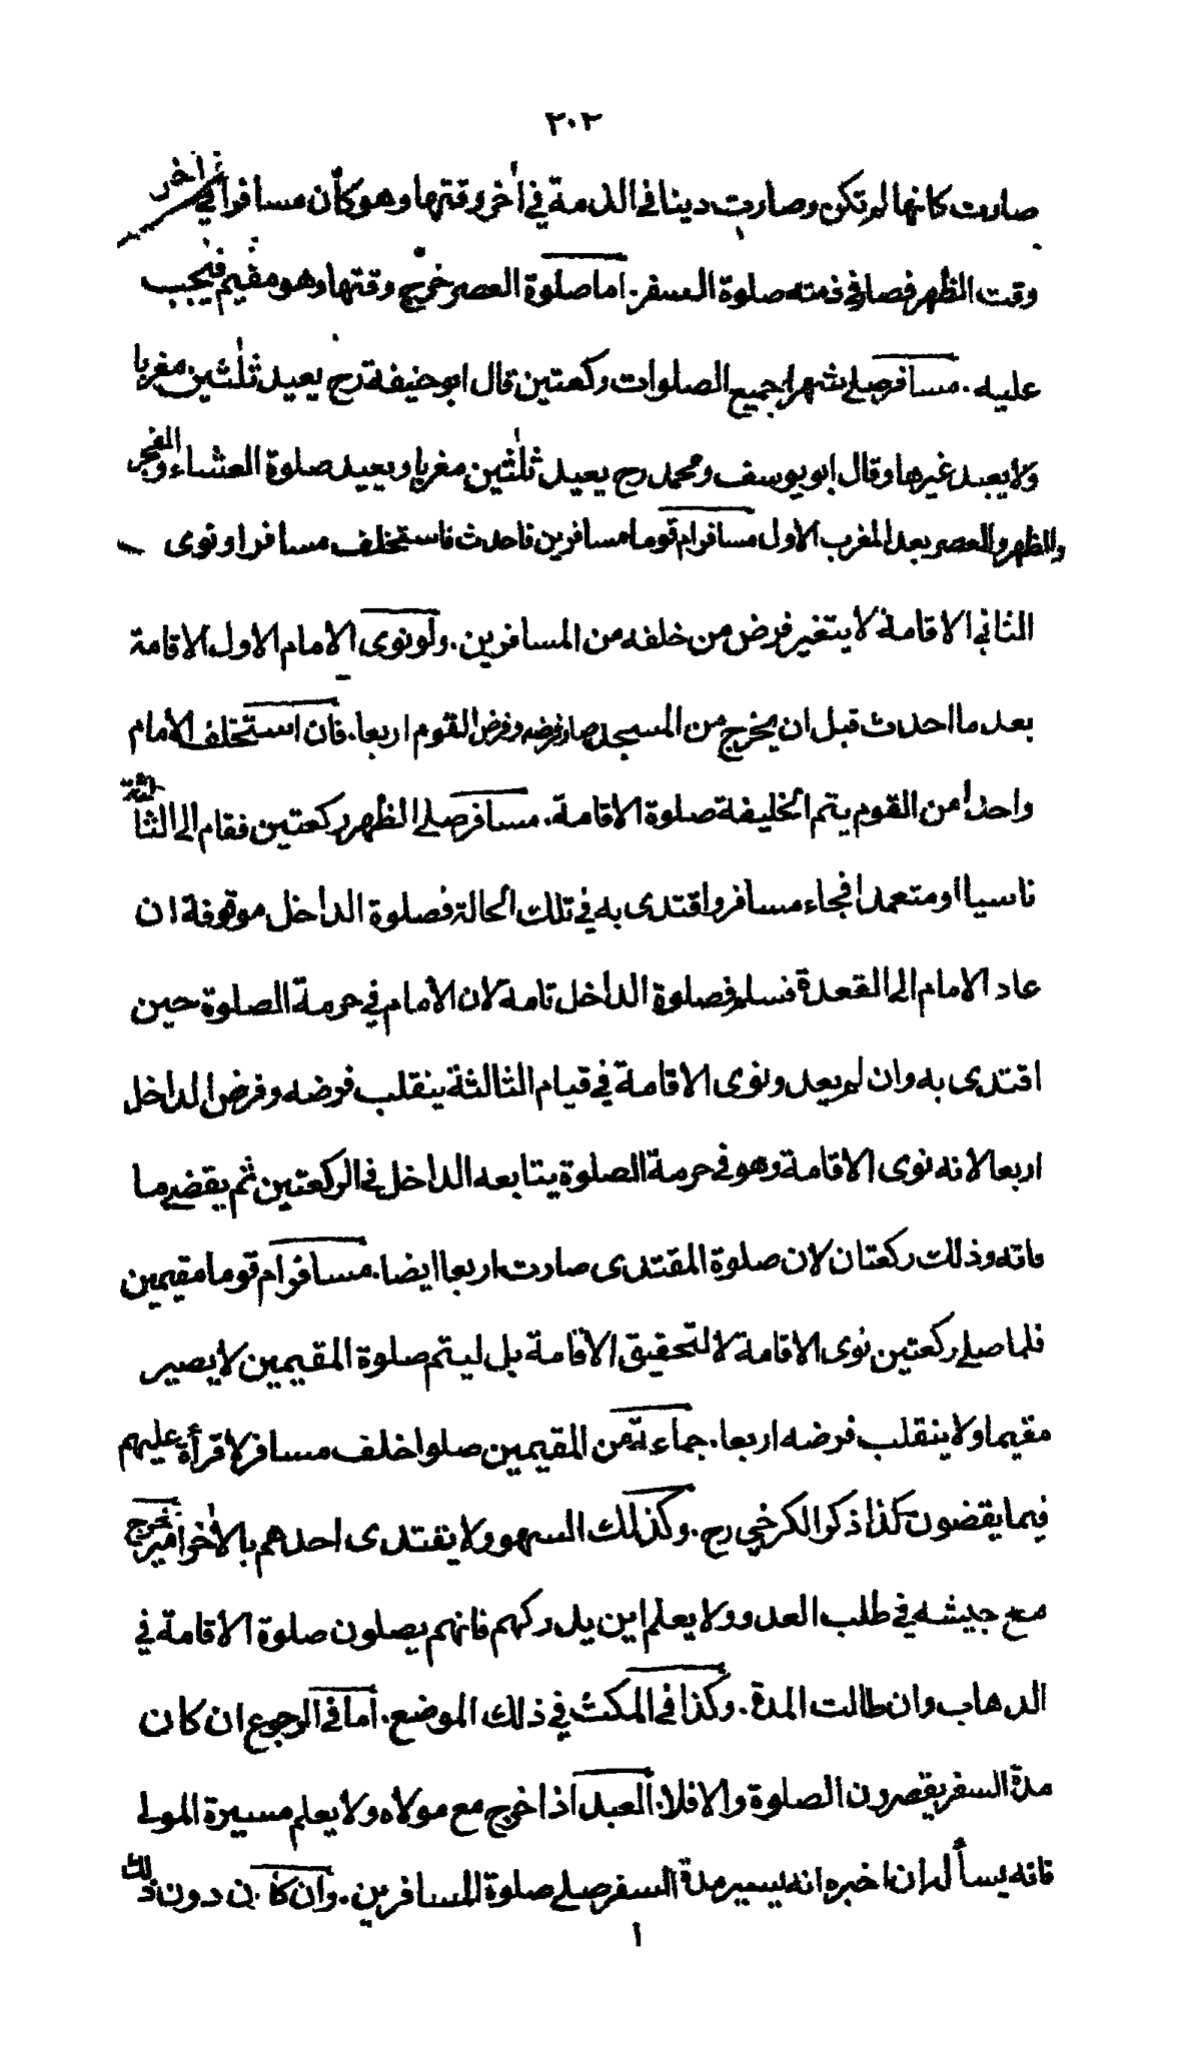 ٣٠٢
صارت كانها لم تكن وصارت دينا فى الذمة فى أخر وقتها وهو كأن مسافرا فى أخر
وقت الظهر فصار فى ذمته صلوة السفر. اما صلوة العصر خرج وقتها وهو مقيم فيجب
عليه. مسافر صلى شهرا جميع الصلوات ركعتين قال ابو حنيفة رح يعيد ثلثين مغربا
ولا يعيد غيرها وقال ابو يوسف ومحمد رح يعيد ثلثين مغربا ويعيد صلوة العشاء والفجر
والظهر والعصر بعد المغرب الاول مسافر ام قوما مسافرين فاحدث فاستخلف مسافرا ونوى
الثانى الاقامة لا يتغير فرض من خلفه من المسافرين. ولو نوى الامام الاول الاقامة
بعد ما احدث قبل ان يخرج من المسجد صار فرضه وفرض القوم اربعا. فان استخلف الأمام
واحدا من القوم يتم الخليفة صلوة الاقامة. مسافر صلى الظهر ركعتين فقام الى الثالثة
ناسيا او متعمدا فجاء مسافر واقتدى به فى تلك الحالة فصلوة الداخل موقوفة ان
عاد الامام الى القعدة فسلم فصلوة الداخل تامة لان الأمام فى حرمة الصلوة حين
اقتدى به وان لم يعد ونوى الاقامة فى قيام الثالثة ينقلب فرضه وفرض الداخل
اربعا لانه نوى الاقامة وهو فى حرمة الصلوة يتابعه الداخل فى الركعتين ثم يقضى ما
فاته وذلك ركعتان لان صلوة المقتدى صارت اربعا ايضا. مسافر ام قوما مقيمين
فلما صلى ركعتين نوى الاقامة لا لتحقيق الأقامة بل ليتم صلوة المقيمين لا يصير
مقيما ولا ينقلب فرضه اربعا. جماعة من المقيمين صلوا خلف مسافر لا قرأة عليهم
فيما يقضون كذا ذكر الكرخى رح. وكذلك السهو ولا يقتدى احدهم بالأخر امير خرج
مع جيشه فى طلب العدو ولا يعلم اين يدركهم فانهم يصلون صلوة الأقامة فى
الذهاب وان طالت المدة. وكذا فى المكث فى ذلك الموضع. أما فى الرجوع ان كان
مدة السفر يقصرون الصلوة والا فلا. العبد اذا خرج مع مولاه ولا يعلم مسيرة المولى
فانه يسأله ان اخبره انه يسير مدة السفر صلى صلوة المسافرين. وان كان دون ذلك
ا